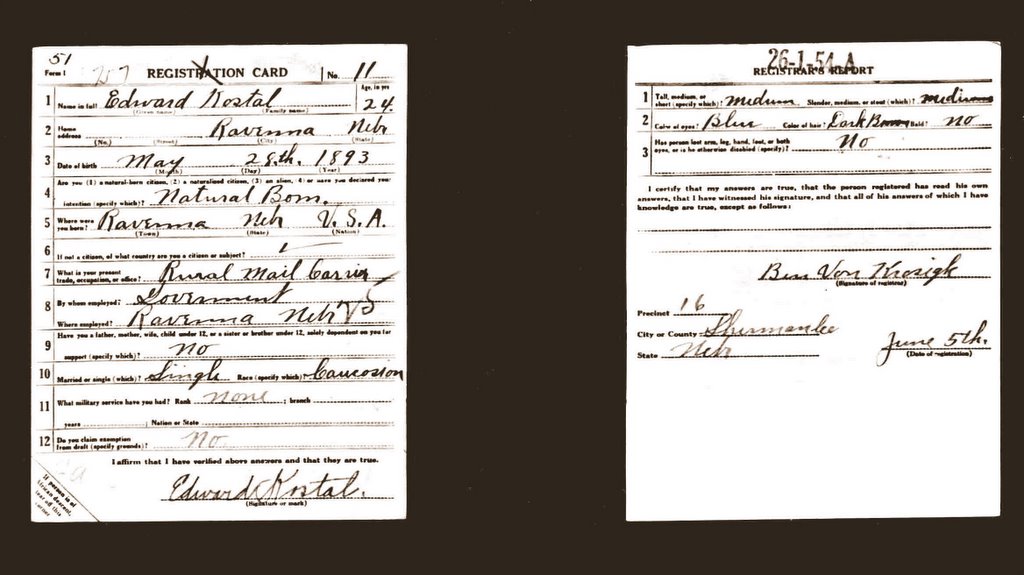 51
Form 1 REGISTRATION CARD No. 11
1 Name in full Edward Kostal Age, in yrs 24.
(Given name) (Family name)
2 Home address Ravenna Nebr
(No.) (Street) (City) (State)
3 Date of birth May 28th. 1893
(Month) (Day) (Year)
4 Are you (1) a natural-born citizen, (2) a naturalized citizen, (3) an alien, (4) or have you declared your
intention (specify which)? Natural Born.
5 Where were you born? Ravenna Nebr U.S.A.
(Town) (State) (Nation)
6 If not a citizen, of what country are you a citizen or subject?
7 What is your present trade, occupation, or office? Rural Mail Carrier
8 By whom employed? Goverment
Where employed? Ravenna Nebr
9 Have you a father, mother, wife, child under 12, or a sister or brother under 12, solely dependent on you for
support (specify which)? No
10 Married or single (which)? Single Race (specify which)? Caucosion
11 What military service have you had? Rank none ; branch
years ; Nation or State
12 Do you claim exemption from draft (specify grounds)? No
I affirm that I have verified above answers and that they are true.
Edward Kostal.
(Signature or mark)
If person is of
African descent,
tear off this
corner
26-1-54 A
REGISTRAR'S REPORT
1 Tall, medium, or short (specify which)? Medium Slender, medium, or stout (which)? medium
2 Color of eyes? Blue Color of hair? Dark Brown Bald? No
3 Has person lost arm, leg, hand, foot, or both
eyes, or is he otherwise disabled (specify)? No
I certify that my answers are true, that the person registered has read his own
answers, that I have witnessed his signature, and that all of his answers of which I have
knowledge are true, except as follows:
Ben Von Krosigk
(Signature of registrar)
Precinct 16
City or County Sherman Co
State Nebr
June 5th.
(Date of registration)